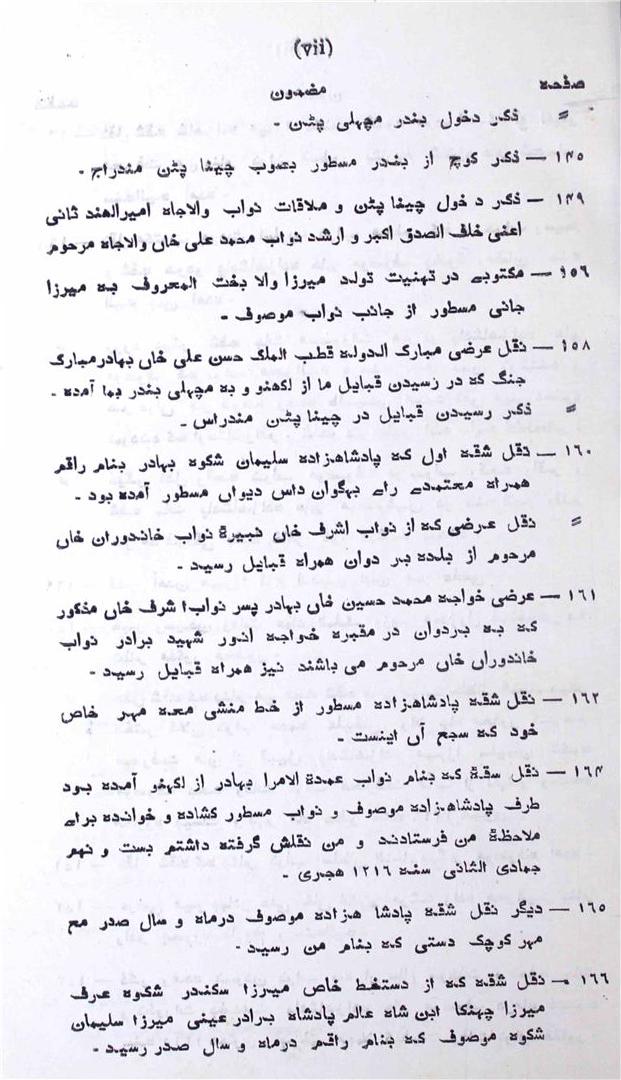 (vii)
صفحه مضمون
〃 ذکر دخول بندر مچهلی پٹن -
۱۴۵ — ذکر کوچ از بندر مسطور بصوب چینا پٹن مندراج -
۱۴۹ — ذکر دخول چینا پٹن و ملاقات نواب والاجاه امیرالهند ثانی
اعنی خلف الصدق اکبر و ارشد نواب محمد علی خاں والاجاه مرحوم
۱۵۶ — مکتوبے در تهنیت تولد میرزا والا بخت المعروف به میرزا
جانی مسطور از جانب نواب موصوف -
۱۵۸ — نقل عرضی مبارک الدوله قطب الملک حسن علی خاں بهادر مبارک
جنگ که در رسیدن قبایل ما از لکهنو و به مچهلی بندر بما آمده -
〃 ذکر رسیدن قبایل در چینا پٹن مندراس -
۱۶۰ — نقل شقه اول که پادشاهزاده سلیمان شکوه بهادر بنام راقم
همراه معتمدے راے بهگوان داس دیواں مسطور آمده بود -
〃 نقل عرضی که از نواب اشرف خاں نبیرۀ نواب خاندوران خاں
مرحوم از بلده بر دوان همراه قبایل رسید -
۱۶۱ — عرضی خواجه محمد حسین خاں بهادر پسر نواب اشرف خاں مذکور
که به بردوان در مقبره خواجه انور شهید برادر نواب
خاندوراں خاں مرحوم می باشند نیز همراه قبایل رسید -
۱۶۲ — نقل شقه پادشاهزاده مسطور از خط منشی معه مهر خاص
خود که سجع آں اینست -
۱۶۴ — نقل سقۀ که بنام نواب عمدة الامرا بهادر از لکهنو آمده بود
طرف پادشاهزاده موصوف و نواب مسطور کشاده و خوانده براے
ملاحظۀ من فرستادند و من نقلش گرفته داشتم بست و نهم
جمادی الثانی سنه ۱۲۱۶ هجری -
۱۶۵ — دیگر نقل شقه پادشا هزاده موصوف درماه و سال صدر مع
مهر کوچک دستی که بنام من رسید -
۱۶۶ — نقل شقه که از دستخط خاص میرزا سکندر شکوه عرف
میرزا چهنکا ابن شاه عالم پادشاه برادر عینی میرزا سلیمان
شکوه موصوف که بنام راقم درماه و سال صدر رسید -